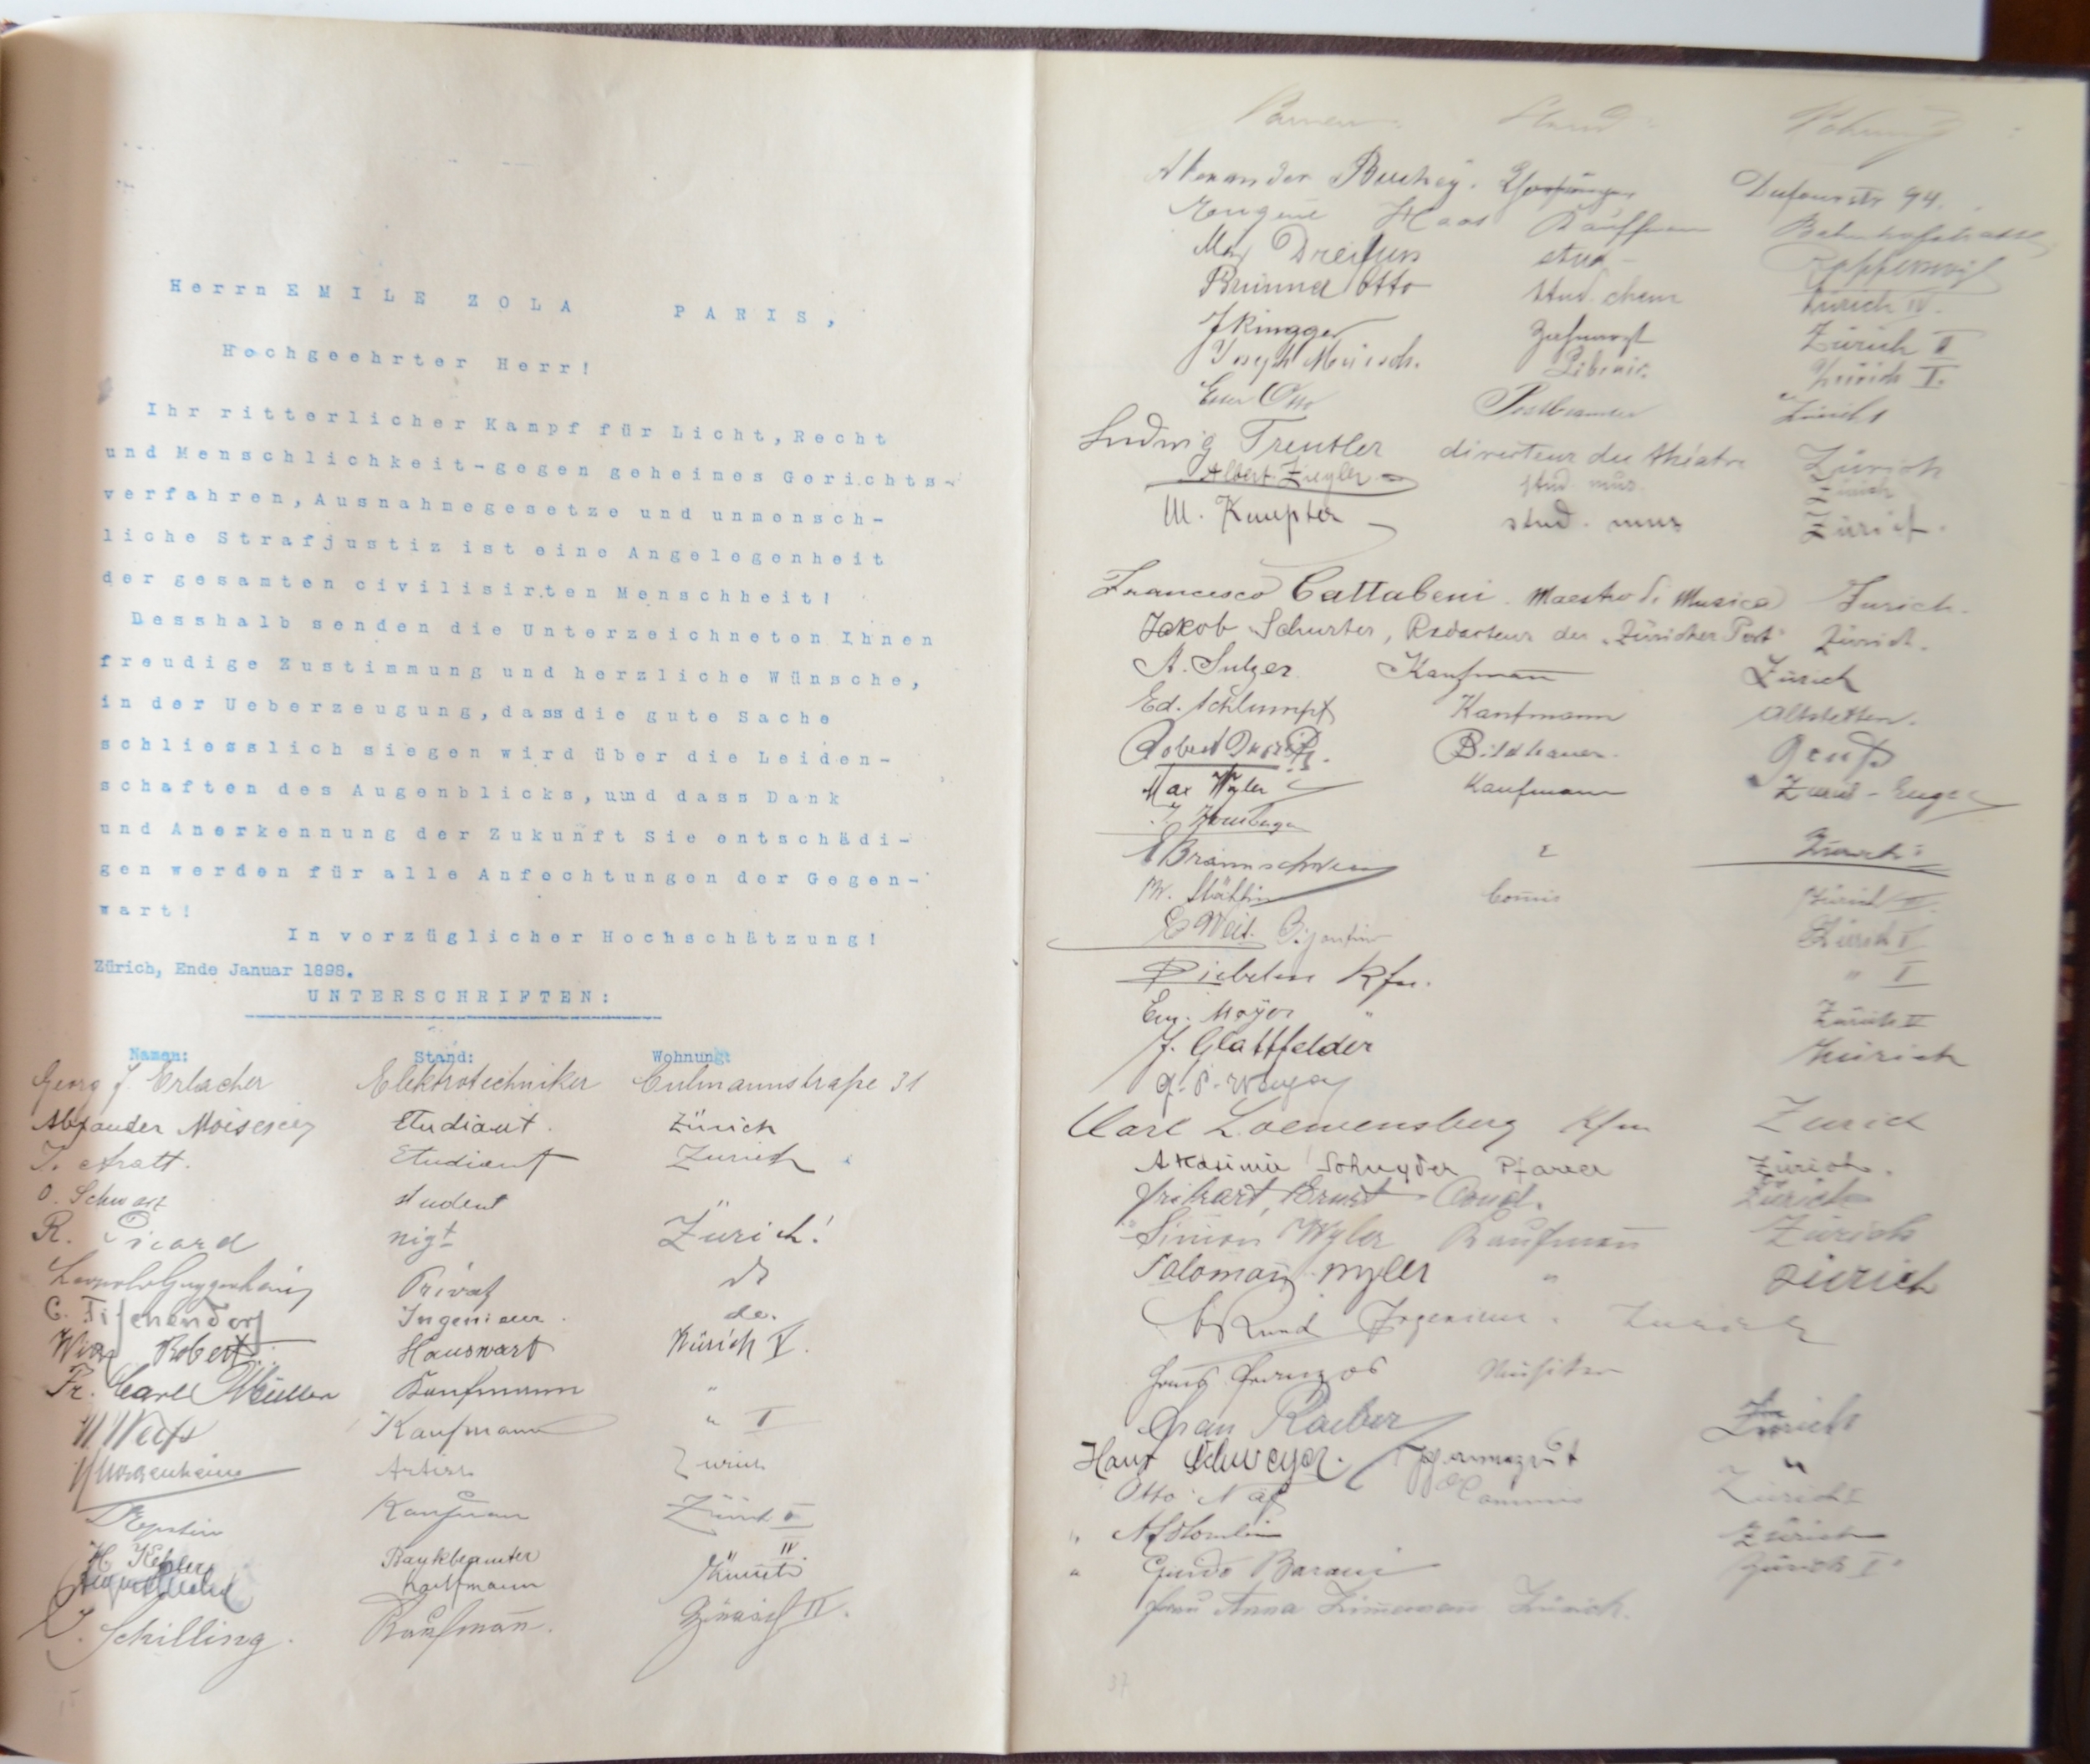 Herrn EMILE ZOLA PARIS,
Hochgeehrter Herr!
Ihr ritterlicher Kampf für Licht, Recht
und Menschlichkeit-gegen geheimes Gerichts-
verfahren, Ausnahmegesetze und unmensch-
liche Strafjustiz ist eine Angelegenheit
der gesamten civilisirten Menschheit!
Desshalb senden die Unterzeichneten Ihnen
freudige Zustimmung und herzliche Wünsche,
in der Ueberzeugung, dass die gute Sache
schliesslich siegen wird über die Leiden-
schaften des Augenblicks, und dass Dank
und Anerkennung der Zukunft Sie entschädi-
gen werden für alle Anfechtungen der Gegen-
wart!
In vorzüglicher Hochschätzung!
Zürich, Ende Januar 1898.
UNTERSCHRIFTEN:
Namen: Stand: Wohnung:
Georg J. Erlacher Elektrotechniker Culmannstraße 31
Alexander Etudiant. Zürich
Etudiant Zurich
O. Schwarz student "
R. Picard Zürich!
Leopold Guggenheim Privat do
C. Tischendorf Ingenieur. do.
Robert Hauswart Zürich V.
Fr. Carl Müller Kaufmann "
W Weiss Kaufmann " I
Zurich
Epstein Kaufmann Zürich I
H. Keller Bankbeamter Zürich IV.
Kaufmann
J. Schilling. Kaufmann. Zürich II.
Namen: Stand: Wohnung:
Alexander Dufourstr 94.
Haas Kauffman Bahnhofstrasse
Max Dreifuss stud Rapperswyl
Brunner Otto stud. chem Zürich IV.
J Ringger Zahnarzt Zürich II
Joseph Zürich I.
Otto Postbeamter Zürich
Ludwig Treutler directeur du théatre Zürich
Albert Ziegler stud. mus. Zürich
W. Kempter stud. mus Zürich.
Francesco Cattabeni. Maestro di Musica Zurich.
Jakob Schurter, Redacteur der "Züricher Post" Zürich.
A. Sulzer Kaufmann Zürich
Ed. Schlumpf Kaufmann Altstetten.
Robert Bildhauer. Genf
Max Wyler Kaufmann Zürich-Enge
Braunschweig Zürich
Commis Zürich III
E Weil. Zürich I
Kfm. " I
Eug. Mayer " Zürich II
J. Glattfelder Zürich
Carl Loewensberg Kfm Zurich
Pfarrer Zürich.
Ernst Cand. Zürich
Simon Wyler Kaufmann Zürich
Salomon Wyler " Zürich
Ingenieur. Zurich
Hans Franzos Musiker
Frau Raeber Zürich
Hans Schweyer. "
Otto Näf Commis Zürich I
" Zürich
" Guido Zürich I
Frau Anna Zimmermann Zürich.
37